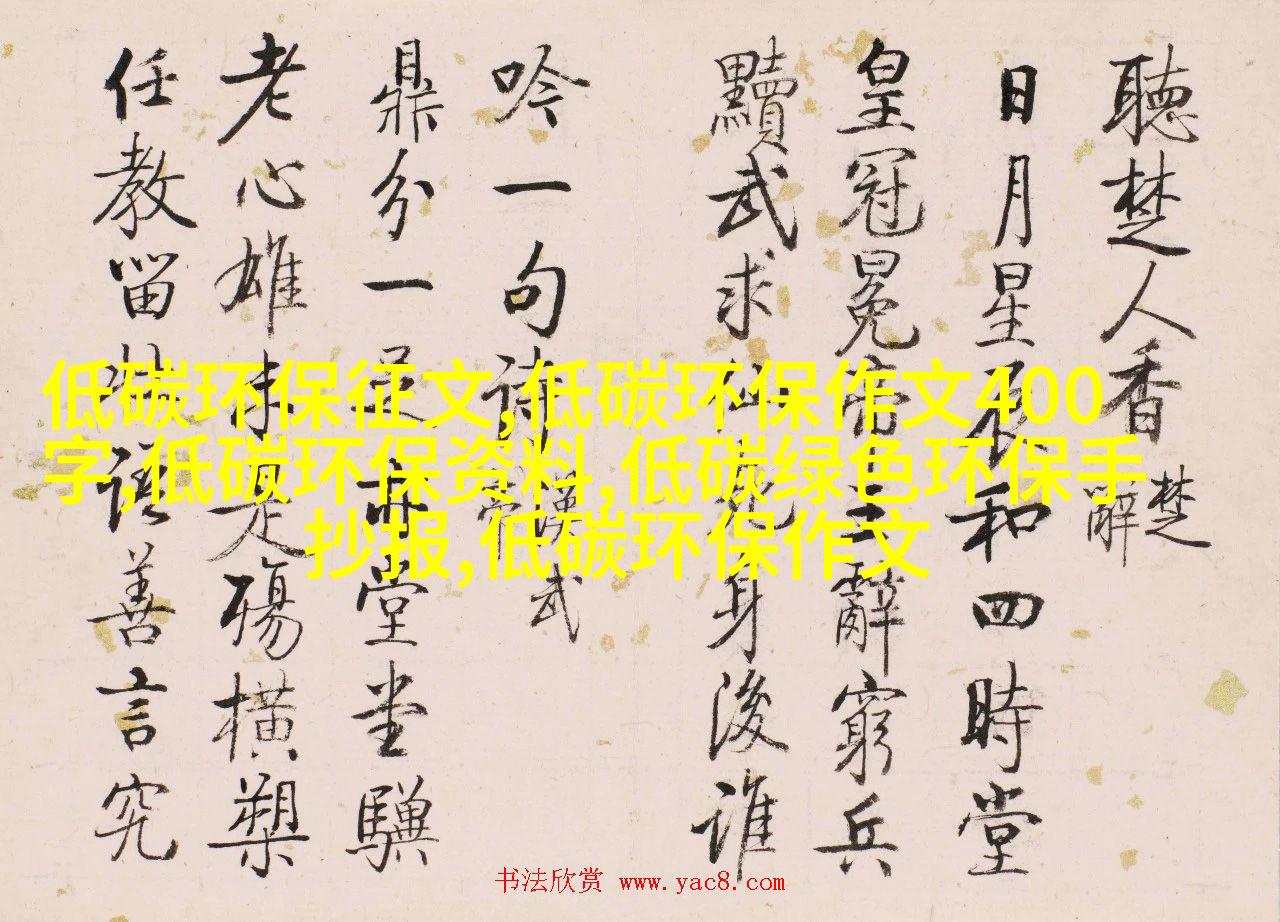 聽楚人香
楚
辭
日月星辰和四時堂
皇冠冕帝王辭窮兵
黷武求仙死身後誰
吟一句詩
漢武
帝
鼎分一足亦堂堂驥
老心雄未是殤橫槊
任教留
語善言究
低碳环保征文,低碳环保作文400
字,低碳环保资料,低碳绿色环保手
抄报,低碳环保作文
书法欣赏 www.yac8.com